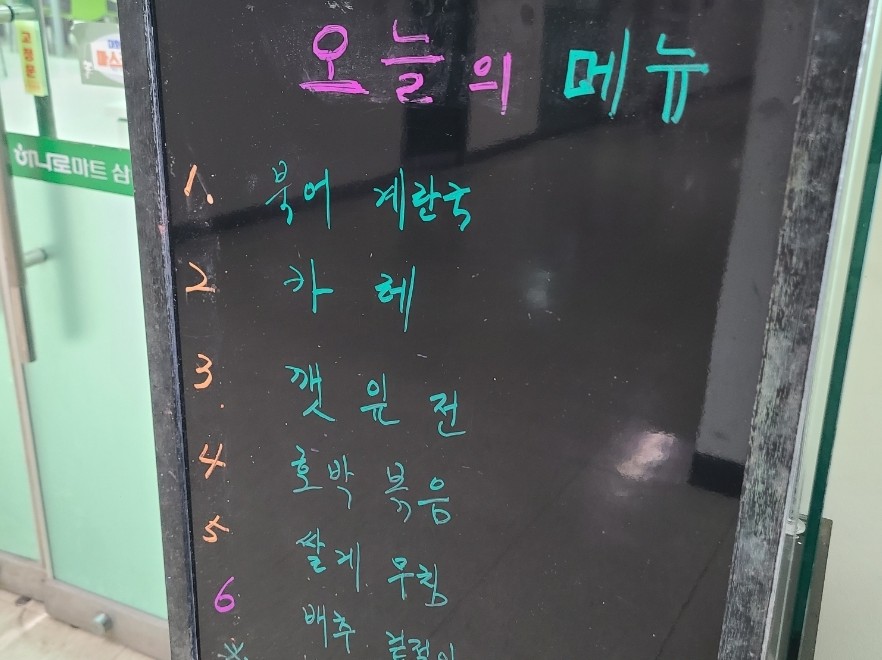 오늘의 메뉴
고정문
하나로마트 삼
1. 북어 계란국
2. 카레
3. 깻잎전
4 호박 볶음
5 쌀게 무침
6 배추 겉절이
※